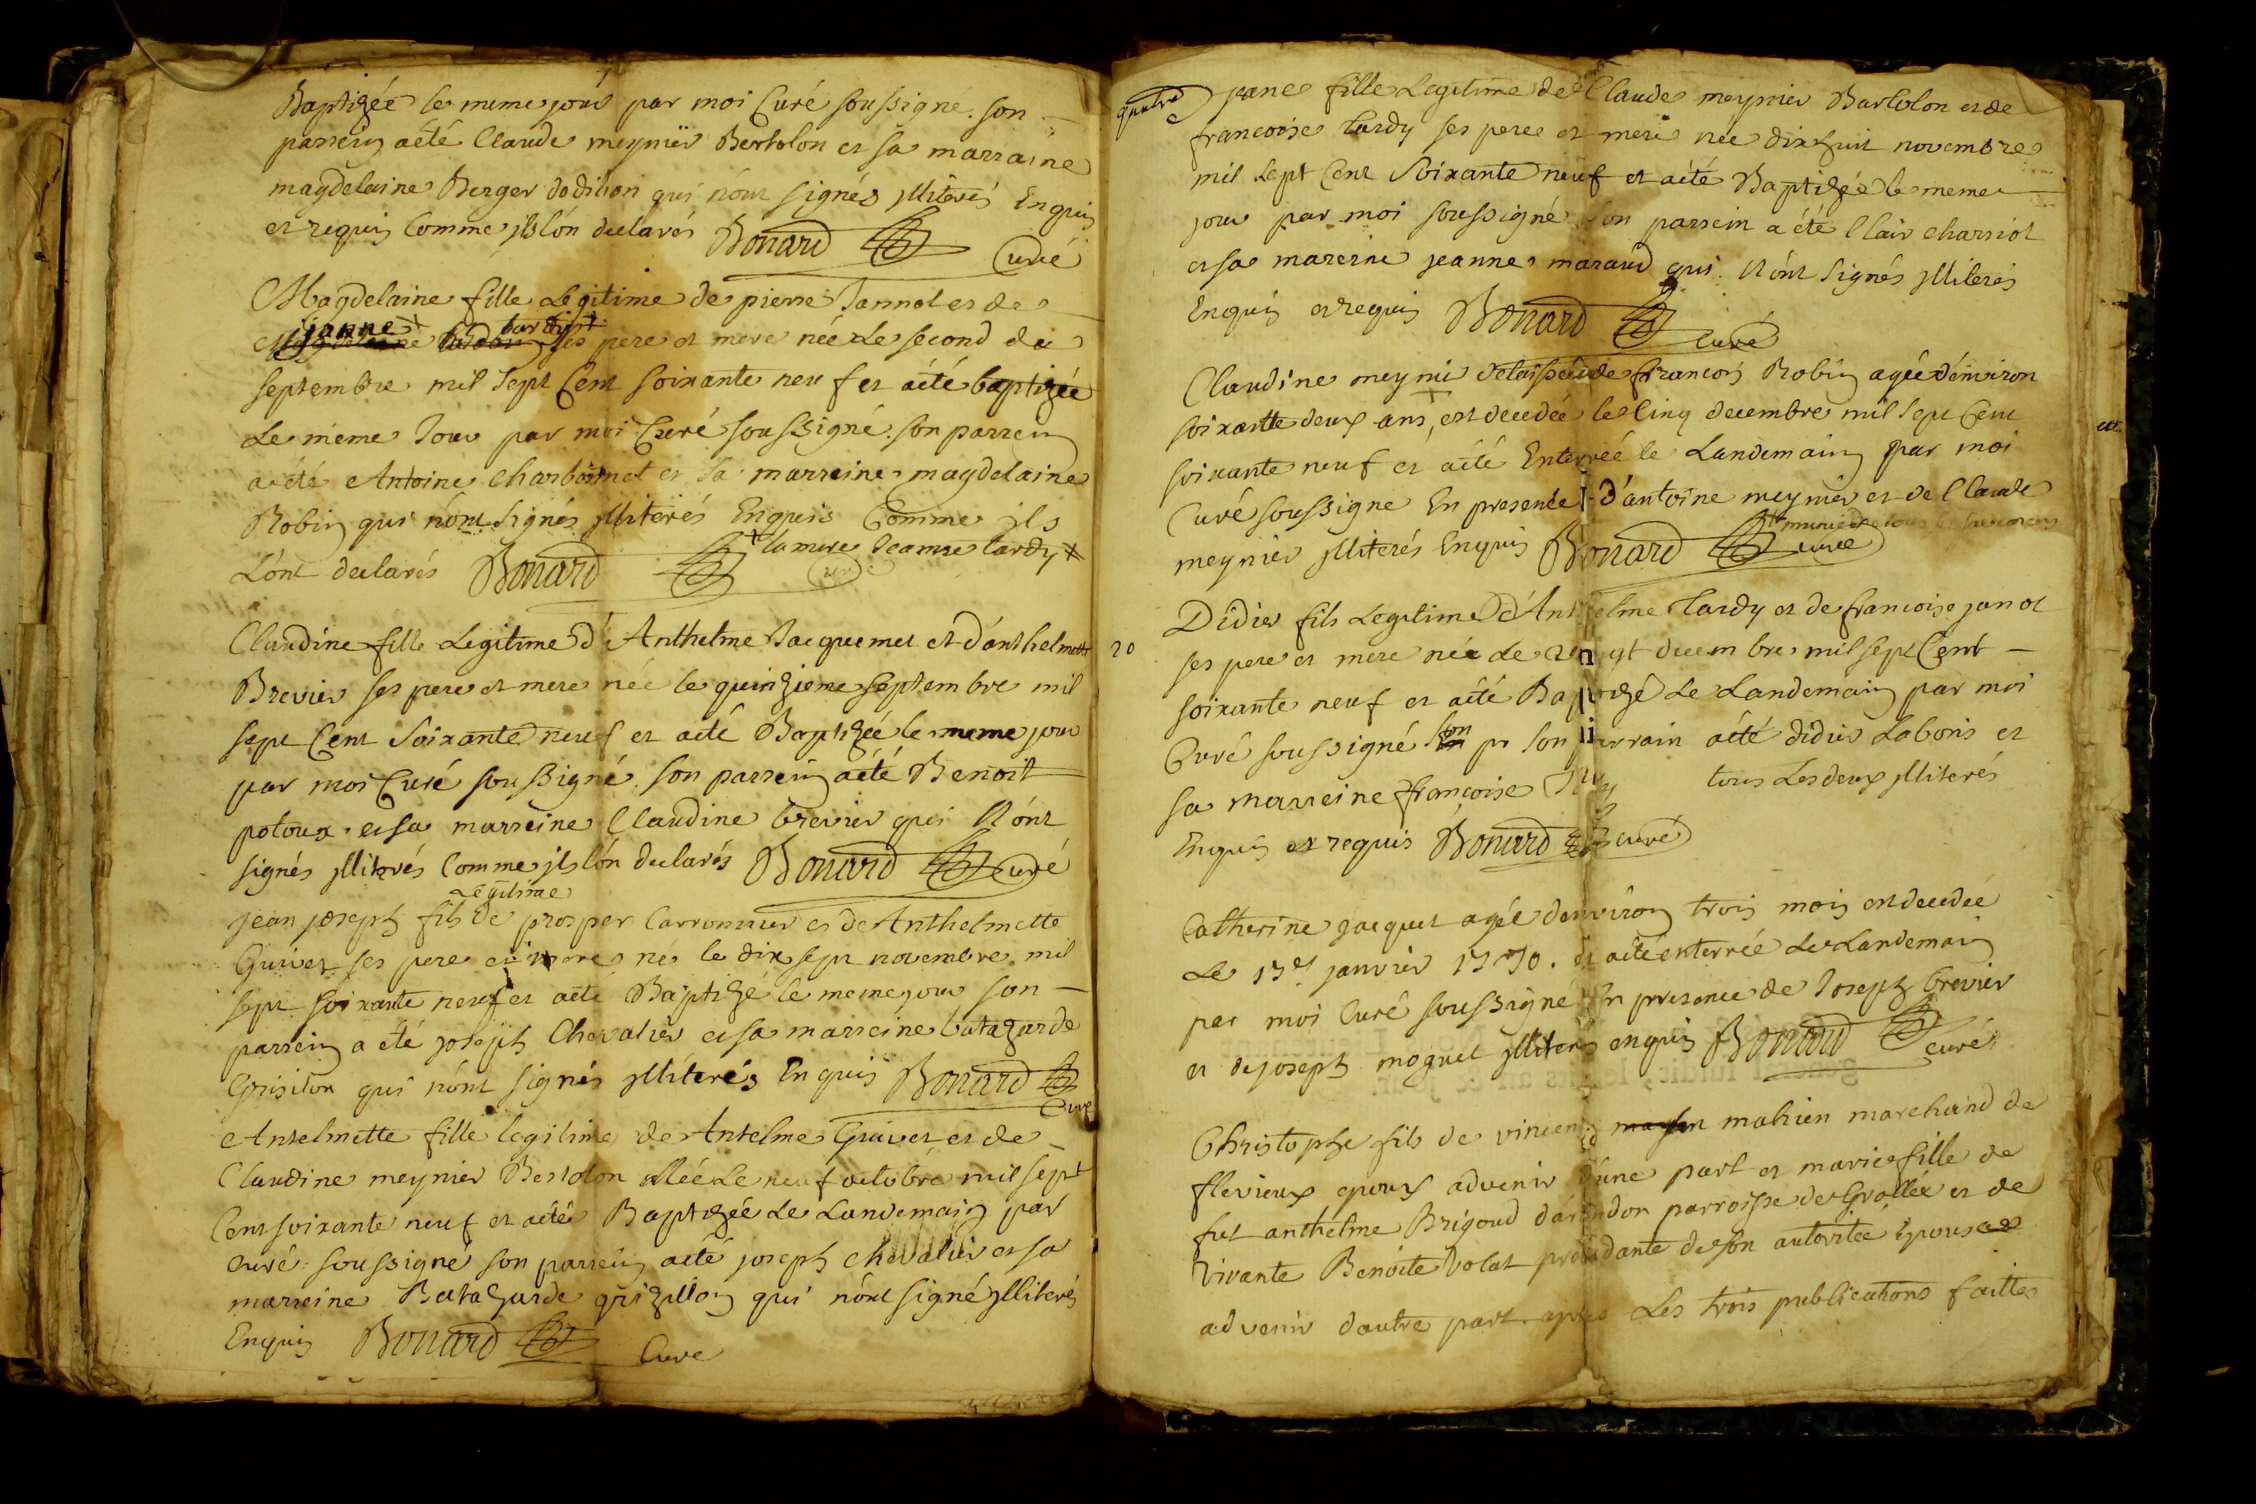 Baptizée le meme jour par moi Curé soussigné. son
parrein a été Claude meynier Bertolon et sa marraine
magdelaine Berger dodilion qui nónt signés jlliterés Enquis
et requis Comme jls lón declarés Bonard Curé
Magdelaine fille Legitime de pierre Jannot et de
janne tardy ses pere et mere née Le second de
septembre mil sept Cent soixante neuf et a été baptizée
Le meme Jour par moi Curé soussigné. son parrein
a été Antoine Charbonnet et sa marreine magdelaine
Robin qui nónt signés jlliterés Enquis Comme ils
Lónt declarés Bonard Curé
la mere Jeanne tardy
Claudine fille Legitime d'Anthelme Jacquemet et d'anthelmette
Brevier ses pere et mere née le quinzieme septembre mil
sept Cent Soixante neuf et a été Baptizée le meme jour
par moi Curé soussigné. son parrein a été Benoit
potoux et sa marreine Claudine brevier qui Nónt
signés jlliterés Comme jls lón declarés Bonard Curé
Legitime
jean joseph fils de prosper Carronnier et de Anthelmette
Guivet ses pere et mere né le dix sept novembre mil
sept soixante neuf et a été Baptizé le meme jour son
parrein a été joseph Chevalier et sa marreine batazarde
Grisilon qui nónt signés jlliterés Enquis Bonard Curé
Antelmette fille legitime de Antelme Guivet et de
Claudine meynier Bertolon Née Le neuf octobre mil sept
Cent soixante neuf et a été Baptizée Le Landemain par
curé soussigné son parrein a été joseph chevalier et sa
marreine Batazarde grizillon qui nónt signé jlliterés
Enquis Bonard Curé
quatre
jane fille Legitime de Claude meynier Bartolon et de
francoise tardy ses pere et mere née dixhuit novembre
mil sept Cent Soixante neuf et a été Baptizée le meme
jour par moi soussigné son parrein a été Clair charriot
et sa marreine jeanne maraud qui Nónt signés jlliterés
Enquis et requis Bonard curé
Claudine meynie delaissée de francois Robin agée d'environ
soixante deux ans, est decedée le Cinq decembre mil sept Cent
soixante neuf et a été Enterrée le Landemain par moi
Curé soussigne En presence d'antoine meynier et de Claude
meynier jlliterés Enquis Bonard curé
munie de tous les sacremens
Didier fils Legitime d'Anthelme tardy et de francoise janot
20
ses pere et mere née Le vingt decembre mil sept Cent
soixante neuf et a été Baptizé Le Landemain par moi
Curé soussigné son parrain a été didier Labonis et
sa marreine françoise tous Les deux jlliterés
Enquis et requis Bonard curé
Catherine jacquet agée d'environ trois mois est decedée
Le 17e janvier 1770. et a été enterrée Le Landemain
par moi Curé soussigné En presence de Joseph brevier
et de joseph moguet jlliterés enquis Bonard curé
Christophe fils de vincent mahien marchand de
flevieux epoux advenir d'une part et marie fille de
fut anthelme Brigoud d'arandon parroisse de Grollée et de
vivante Benoite volat procedante de son autoritée Epouse
advenir d'autre part apres Les trois publications faittes